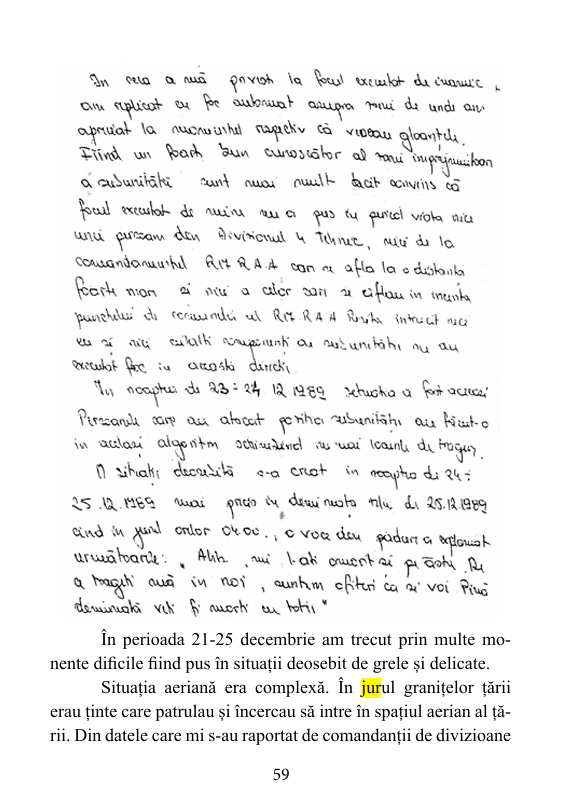 In ceea ce mă privește la focul executat de inamic,
am replicat cu foc automat asupra zonei de unde am
apreciat la momentul respectiv că veneau gloanțele.
Fiind un foarte bun cunoscător al zonei împrejmuitoare
a subunității sunt mai mult decît convins că
focul executat de mine nu a pus în pericol viața nici
unei persoane din Divizionul 4 Tehnic, nici de la
comandamentul R.17 R.A.A care se afla la o distanță
foarte mare și nici a celor care se aflau în incinta
punctului de comandă al R.17 R.A.A întrucît nici
eu și nici ceilalți componenți ai subunității nu au
executat foc în această direcție.
In noaptea de 23-24 12.1989 situația a fost aceeași
Persoanele care au atacat poziția subunității au făcut-o
în același algoritm schimbînd nu mai locurile de tragere.
O situație deosebită s-a creat în noaptea de 24-
25.12.1989 mai precis în dimineața zilei de 25.12.1989
cînd în jurul orelor 04.00., o voce din pădure a exclamat
următoarele: "Ahh, mi l-ați omorît și pe ăsta. De
ce trageți mă în noi, suntem ofițeri ca și voi. Pînă
dimineață veți fi morți cu toții"
În perioada 21-25 decembrie am trecut prin multe mo-
mente dificile fiind pus în situații deosebit de grele și delicate.
Situația aeriană era complexă. În jurul granițelor țării
erau ținte care patrulau și încercau să intre în spațiul aerian al ță-
rii. Din datele care mi s-au raportat de comandanții de divizioane
59